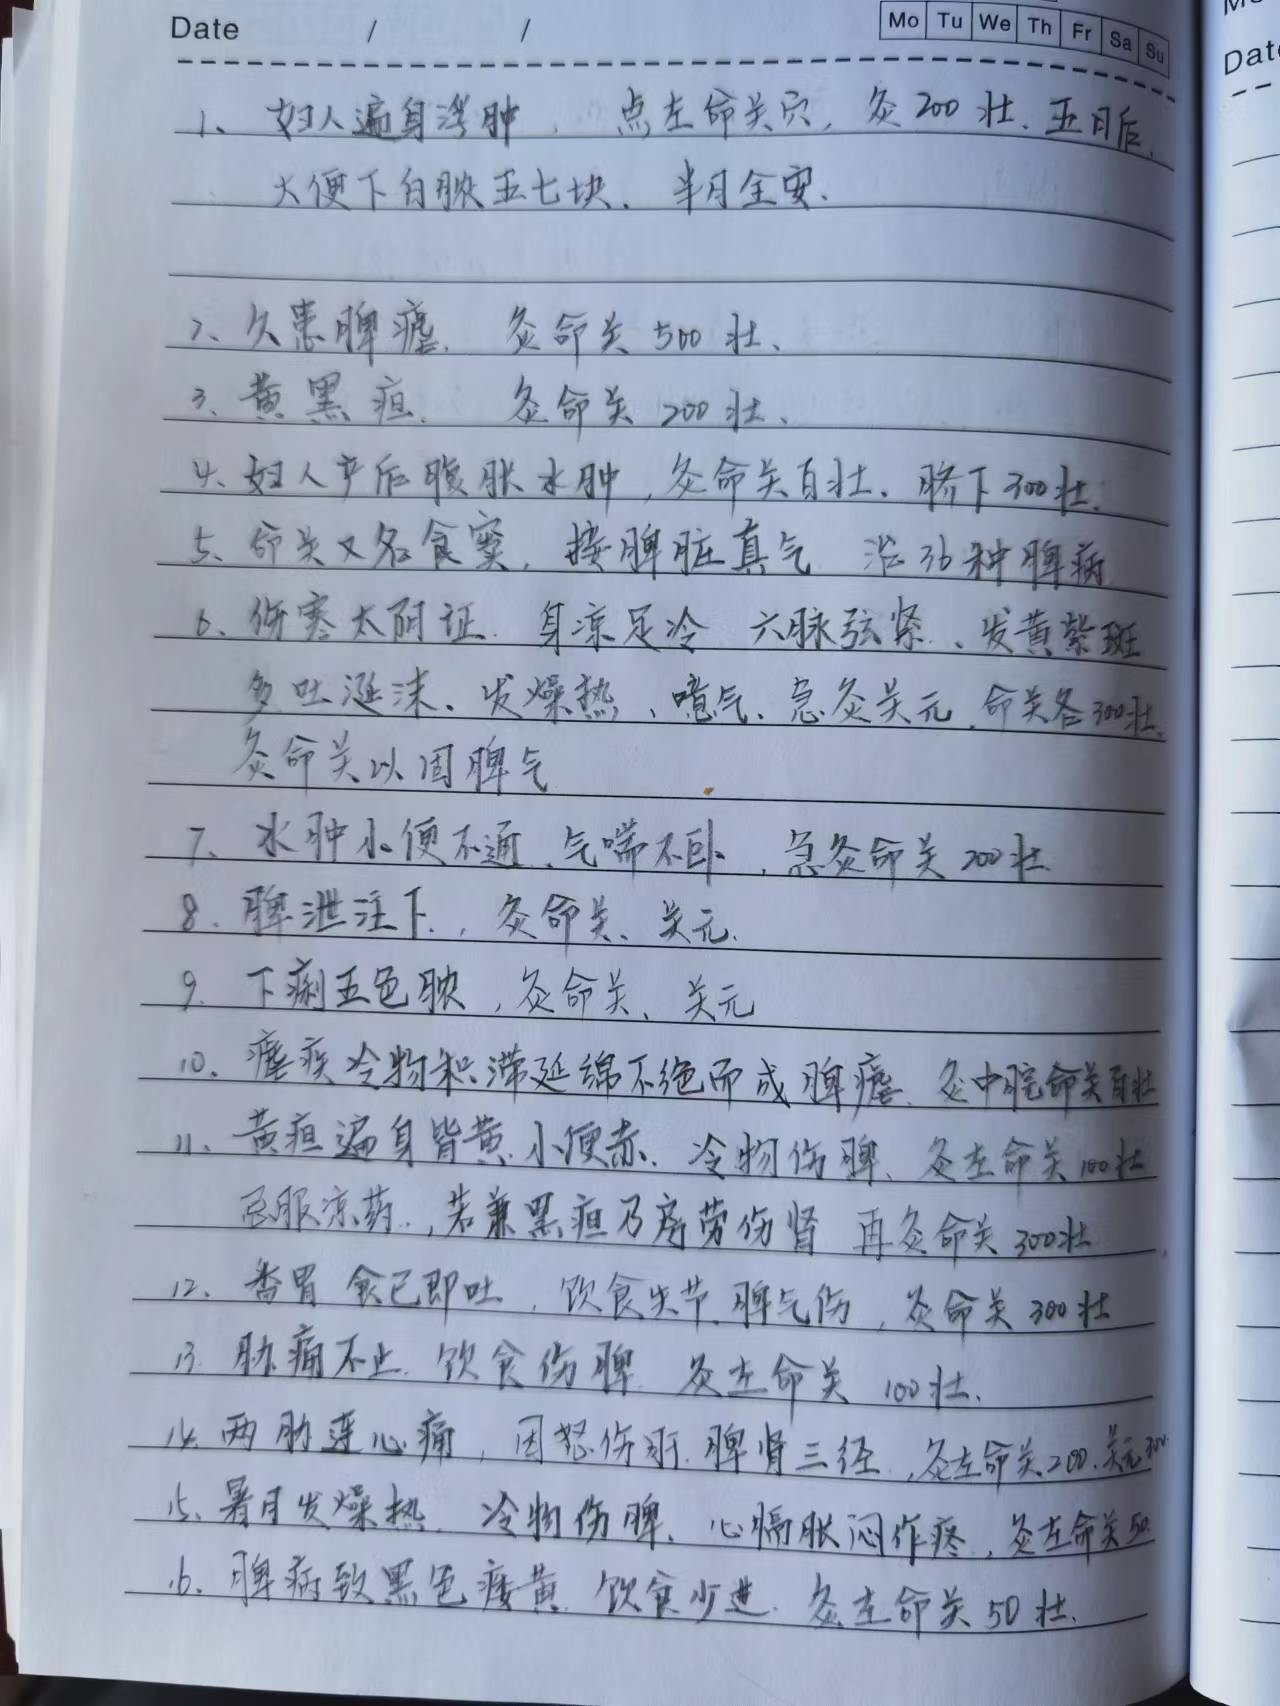 Date / /
Mo Tu We Th Fr Sa Su
Date
1、妇人遍身浮肿, 点左命关穴, 灸200壮. 五日后,
大便下白脓五七块. 半月全安.
2、久患脾疟. 灸命关500壮、
3、黄黑疸. 灸命关200壮、
4、妇人产后腹胀水肿,灸命关百壮. 脐下300壮.
5、命关又名食窦, 接脾脏真气 治36种脾病
6、伤寒太阴证. 身凉足冷 六脉弦紧、发黄紫斑
多吐涎沫、发燥热、噫气. 急灸关元.命关各300壮.
灸命关以固脾气
7、水肿小便不通、气喘不卧, 急灸命关200壮.
8. 脾泄注下., 灸命关、关元.
9. 下痢五色脓, 灸命关、关元
10. 疟疾冷物积滞延绵不绝而成脾疟. 灸中脘命关百壮
11、黄疸遍身皆黄.小便赤. 冷物伤脾、灸左命关100壮
忌服凉药.,若兼黑疸乃房劳伤肾 再灸命关300壮
12、番胃 食已即吐, 饮食失节.脾气伤, 灸命关300壮
13. 肋痛不止. 饮食伤脾. 灸左命关 100壮.
14. 两肋连心痛, 因怒伤肝.脾肾三经.,灸左命关200.关元300.
15、暑月发燥热. 冷物伤脾、心膈胀闷作疼, 灸左命关50.
16、脾病致黑色痿黄. 饮食少进. 灸左命关50壮.